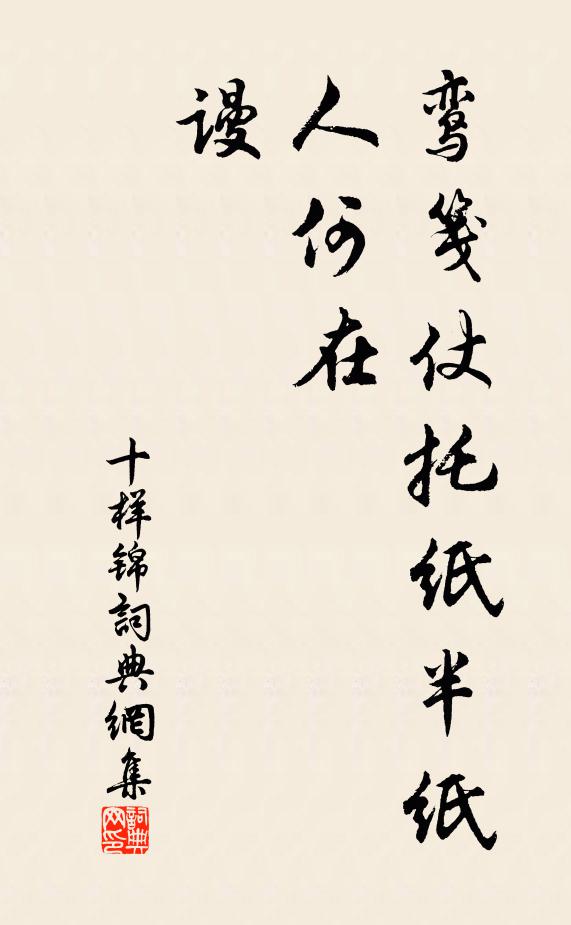 鸾笺仗托纸半纸
人何在
谩
十样锦詞典網集
詞典
网印